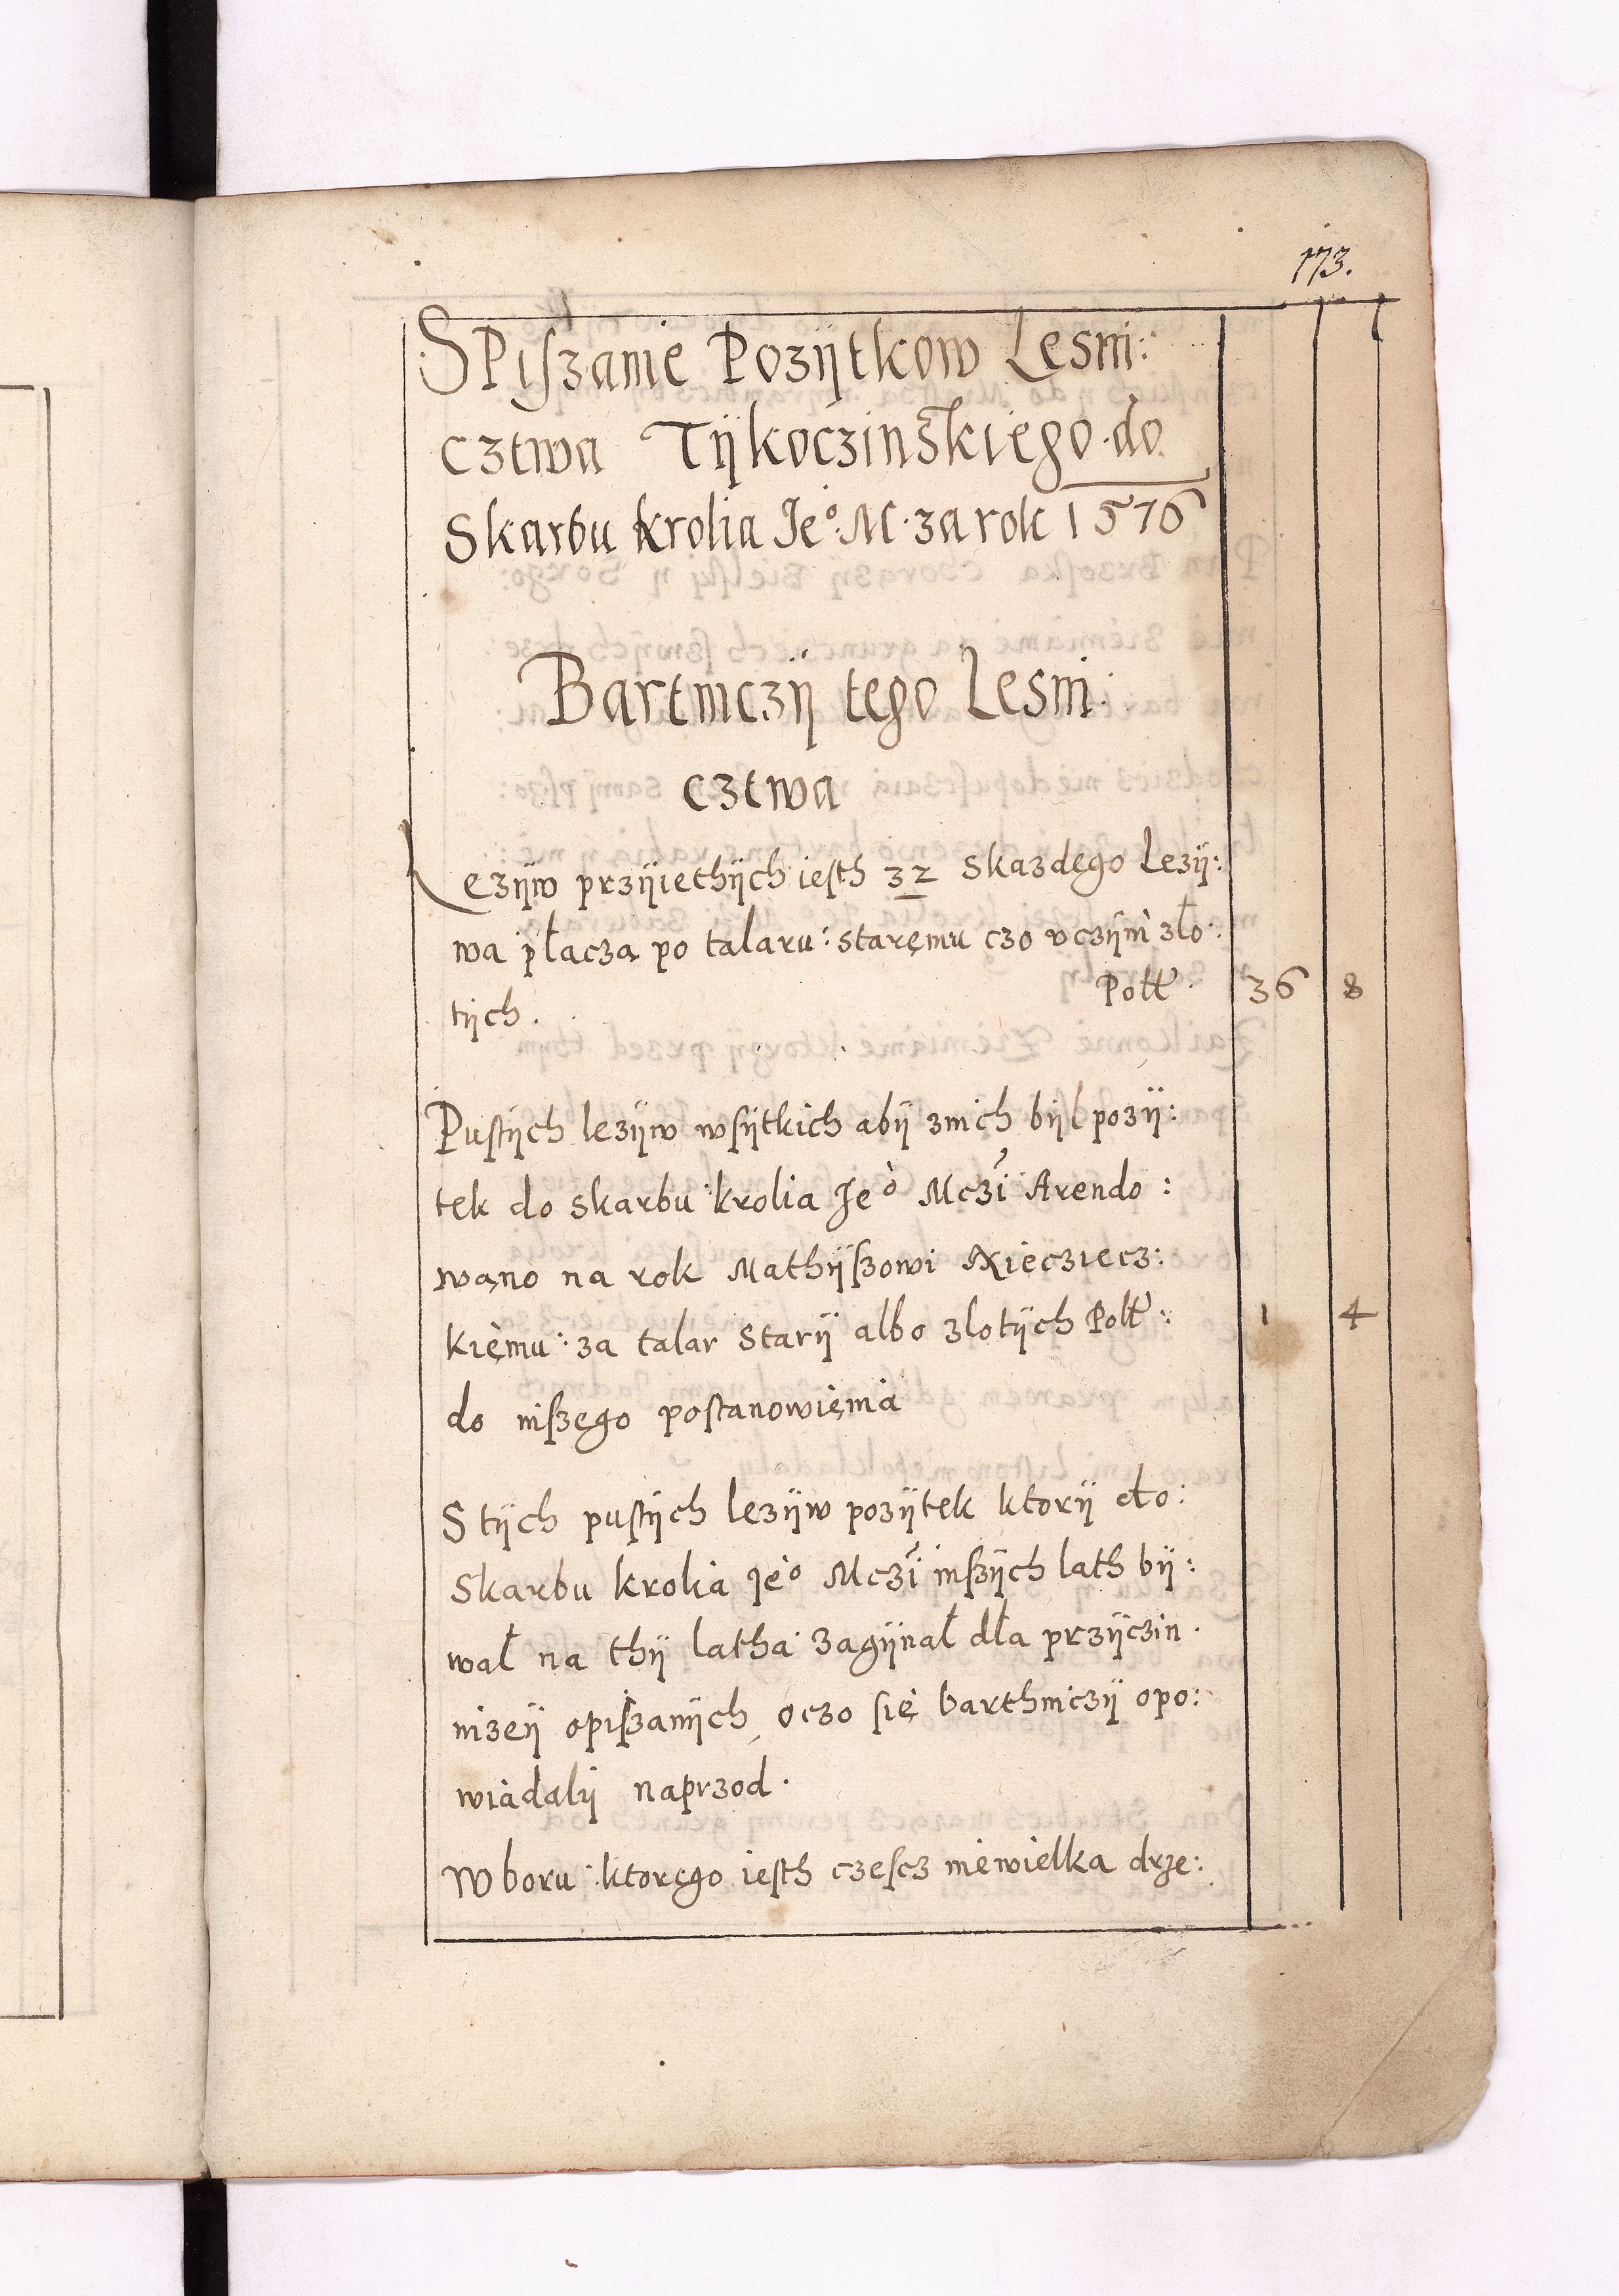 173.
SPiszanie Pozÿtkow Lesni:
cztwa Tÿkoczinskiego do
Skarbu krolia Jeº M. za rok 1576
Bartniczÿ tego Lesni:
cztwa
Lezÿw przÿiethÿch iesth 32 skazdego lezÿ:
wa płacza po talaru: staremu czo vczÿni zło:
tÿch. Połł 36 8
Pustÿch lezÿw wsÿtkich abÿ znich bÿl pozÿ:
tek do skarbu krolia Jeº Mczi Arendo:
wano na rok Mathÿszowi Kiecziecz:
kiemu: za talar starÿ albo zlotÿch Połł: 1 4
do niszego postanowienia
Stÿch pustÿch lezÿw pozÿtek ktorÿ do:
skarbu krolia Jeº Mczi inszÿch lath bÿ:
wał na thÿ latha zagÿnał dła przÿczin
nizeÿ opiszanÿch, oczo się barthniczÿ opo:
wiadalÿ naprzod.
W boru: ktorego iesth czescz niewielka drze: